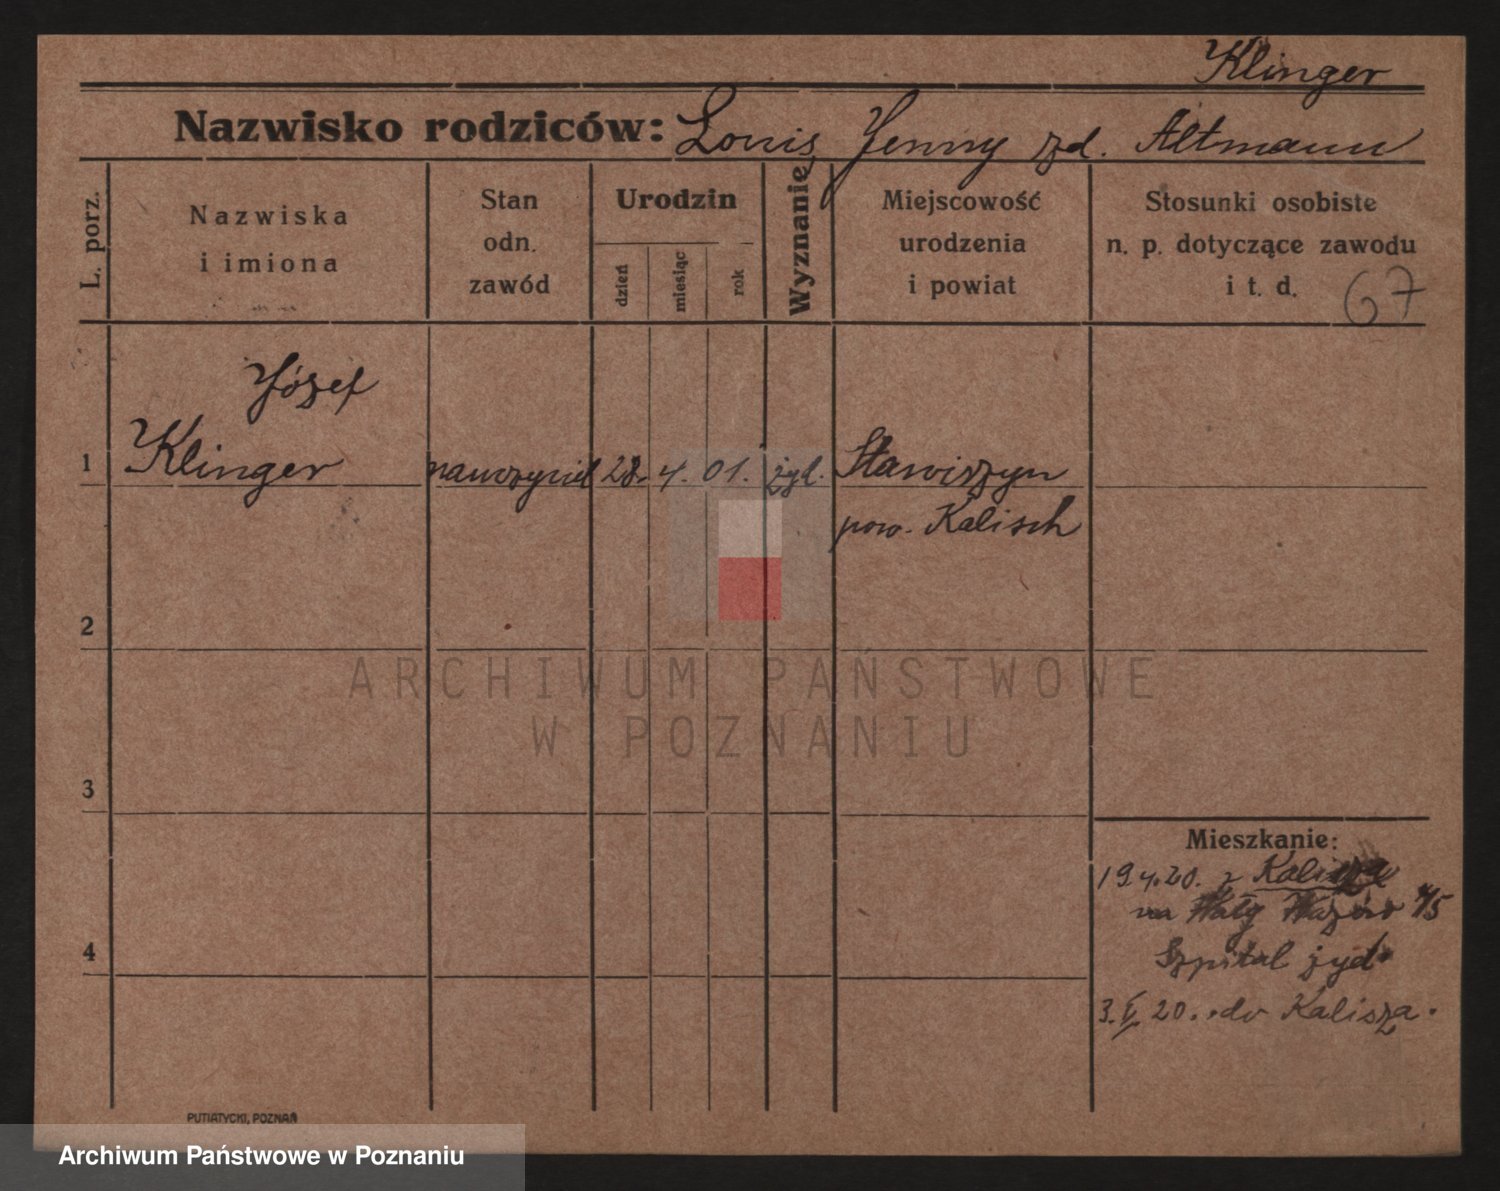 Klinger
Nazwisko rodziców: Louis, Jenny zd. Altmann
L. porz.
Nazwiska
i imiona
Stan
odn.
zawód
Urodzin
dzień
miesiąc
rok
Wyznanie
Miejscowość
urodzenia
i powiat
Stosunki osobiste
n. p. dotyczące zawodu
i t. d.
67
Józef
1 Klinger nauczyciel 28. 4. 01. żyd. Stawiszyn
pow. Kalisch
2
3
4
Mieszkanie:
19 4.20. z Kalisza
na Wały
Szpital żyd.
3. V 20. do Kalisza.
PUTIATYCKI, POZNAŃ
ARCHIWUM PAŃSTWOWE
W POZNANIU
Archiwum Państwowe w Poznaniu